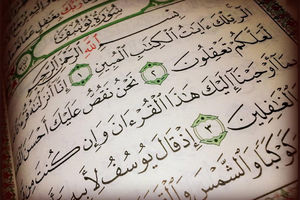 سُورَةُ يُوسُفَ
بِسْمِ اللَّهِ الرَّحْمَٰنِ الرَّحِيمِ
الٓر تِلْكَ ءَايَٰتُ الْكِتَٰبِ الْمُبِينِ ١ إِنَّا أَنزَلْنَٰهُ
لَّعَلَّكُمْ تَعْقِلُونَ ٢ نَحْنُ نَقُصُّ عَلَيْكَ أَحْسَنَ
بِمَا أَوْحَيْنَا إِلَيْكَ هَٰذَا الْقُرْءَانَ وَإِن كُنتَ مِن
الْغَٰفِلِينَ ٣ إِذْ قَالَ يُوسُفُ لِأَبِيهِ
كَوْكَبًا وَالشَّمْسَ